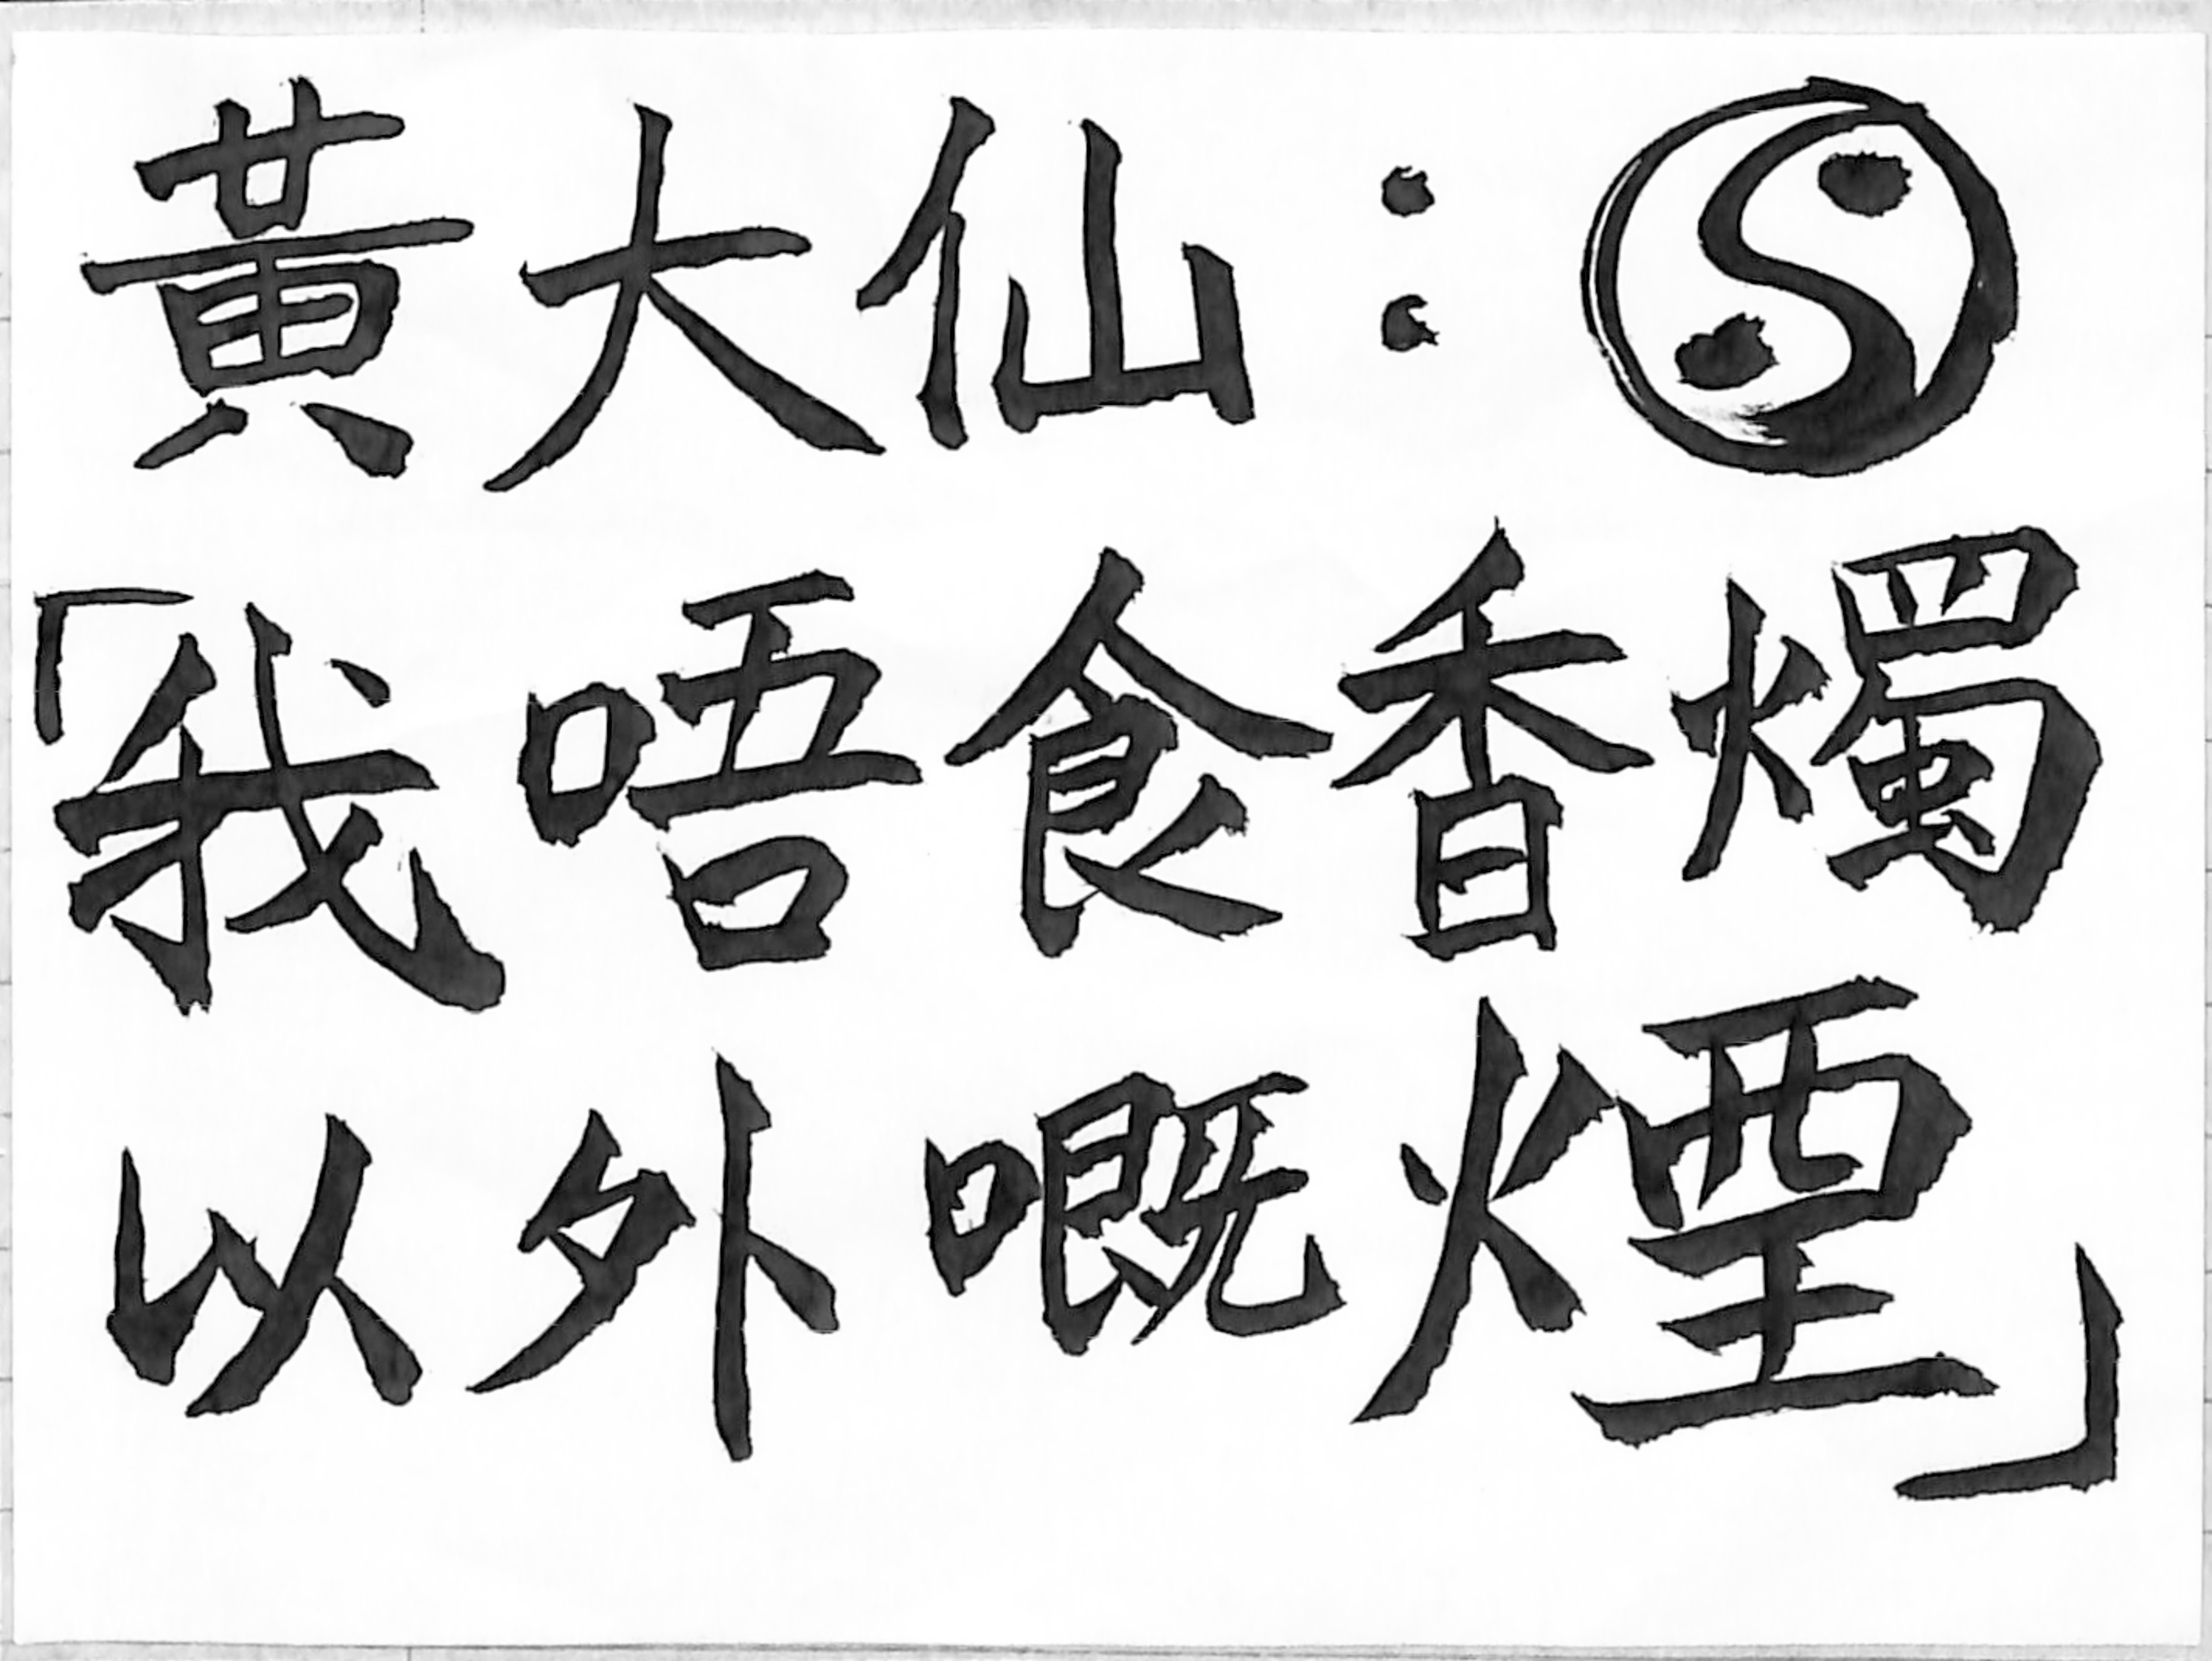 黃大仙：
「我唔食香燭
以外嘅煙」